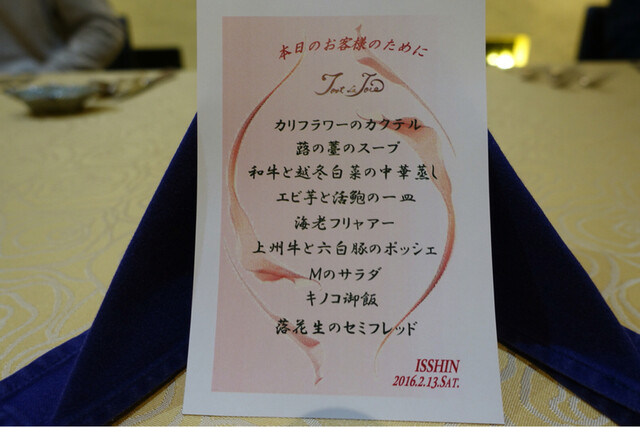 本日のお客様のために
Tout La Joie
カリフラワーのカクテル
蕗の薹のスープ
和牛と越冬白菜の中華蒸し
エビ芋と活鮑の一皿
海老フリャアー
上州牛と六白豚のポッシェ
Mのサラダ
キノコ御飯
落花生のセミフレッド
ISSHIN
2016.2.13.SAT.